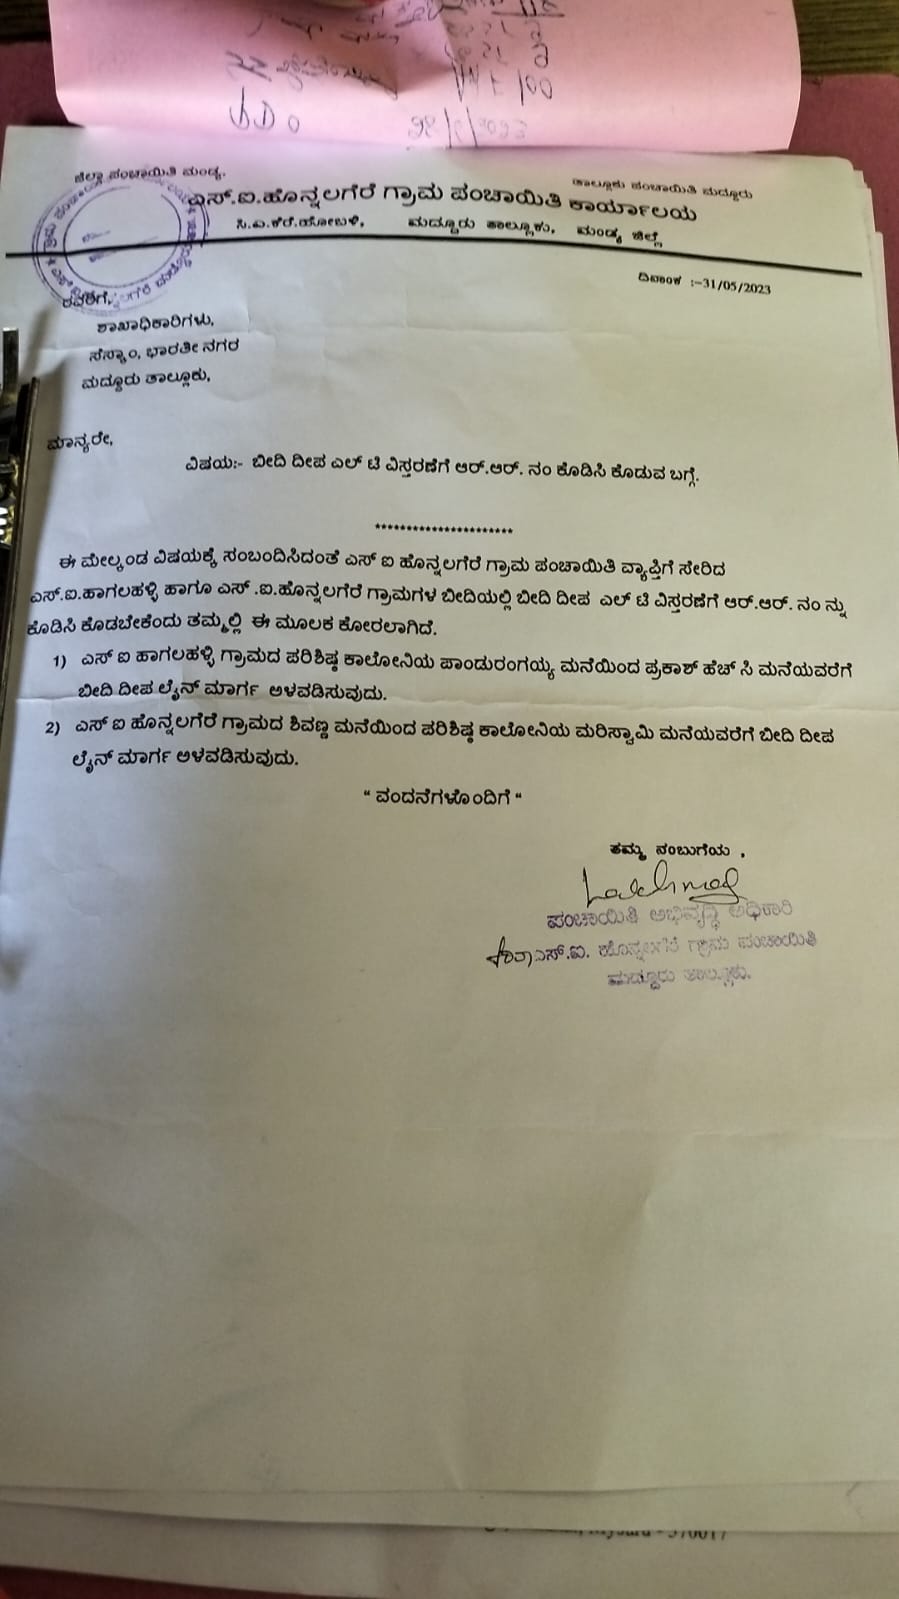 ಜಿಲ್ಲಾ ಪಂಚಾಯಿತಿ ಮಂಡ್ಯ.
ತಾಲ್ಲೂಕು ಪಂಚಾಯಿತಿ ಮದ್ದೂರು
ಎಸ್.ಐ.ಹೊನ್ನಲಗೆರೆ ಗ್ರಾಮ ಪಂಚಾಯಿತಿ ಕಾರ್ಯಾಲಯ
ಸಿ.ಎ.ಕೆರೆ.ಹೋಬಳಿ, ಮದ್ದೂರು ತಾಲ್ಲೂಕು, ಮಂಡ್ಯ ಜಿಲ್ಲೆ
ದಿನಾಂಕ :-31/05/2023
ರವರಿಗೆ,
ಶಾಖಾಧಿಕಾರಿಗಳು,
ಸೆಸ್ಕಾಂ, ಭಾರತೀ ನಗರ
ಮದ್ದೂರು ತಾಲ್ಲೂಕು,
ಮಾನ್ಯರೇ,
ವಿಷಯ:- ಬೀದಿ ದೀಪ ಎಲ್ ಟಿ ವಿಸ್ತರಣೆಗೆ ಆರ್.ಆರ್. ನಂ ಕೊಡಿಸಿ ಕೊಡುವ ಬಗ್ಗೆ.
**********************
ಈ ಮೇಲ್ಕಂಡ ವಿಷಯಕ್ಕೆ ಸಂಬಂದಿಸಿದಂತೆ ಎಸ್ ಐ ಹೊನ್ನಲಗೆರೆ ಗ್ರಾಮ ಪಂಚಾಯಿತಿ ವ್ಯಾಪ್ತಿಗೆ ಸೇರಿದ
ಎಸ್.ಐ.ಹಾಗಲಹಳ್ಳಿ ಹಾಗೂ ಎಸ್ .ಐ.ಹೊನ್ನಲಗೆರೆ ಗ್ರಾಮಗಳ ಬೀದಿಯಲ್ಲಿ ಬೀದಿ ದೀಪ ಎಲ್ ಟಿ ವಿಸ್ತರಣೆಗೆ ಆರ್.ಆರ್. ನಂ ನ್ನು
ಕೊಡಿಸಿ ಕೊಡಬೇಕೆಂದು ತಮ್ಮಲ್ಲಿ ಈ ಮೂಲಕ ಕೋರಲಾಗಿದೆ.
1) ಎಸ್ ಐ ಹಾಗಲಹಳ್ಳಿ ಗ್ರಾಮದ ಪರಿಶಿಷ್ಠ ಕಾಲೋನಿಯ ಪಾಂಡುರಂಗಯ್ಯ ಮನೆಯಿಂದ ಪ್ರಕಾಶ್ ಹೆಚ್ ಸಿ ಮನೆಯವರೆಗೆ
ಬೀದಿ ದೀಪ ಲೈನ್ ಮಾರ್ಗ ಅಳವಡಿಸುವುದು.
2) ಎಸ್ ಐ ಹೊನ್ನಲಗೆರೆ ಗ್ರಾಮದ ಶಿವಣ್ಣ ಮನೆಯಿಂದ ಪರಿಶಿಷ್ಠ ಕಾಲೋನಿಯ ಮರಿಸ್ವಾಮಿ ಮನೆಯವರೆಗೆ ಬೀದಿ ದೀಪ
ಲೈನ್ ಮಾರ್ಗ ಅಳವಡಿಸುವುದು.
“ ವಂದನೆಗಳೊಂದಿಗೆ “
ತಮ್ಮ ನಂಬುಗೆಯ ,
ಪಂಚಾಯಿತಿ ಅಭಿವೃದ್ಧಿ ಅಧಿಕಾರಿ
ಎಸ್.ಐ. ಹೊನ್ನಲಗೆರೆ ಗ್ರಾಮ ಪಂಚಾಯಿತಿ
ಮದ್ದೂರು ತಾಲ್ಲೂಕು.